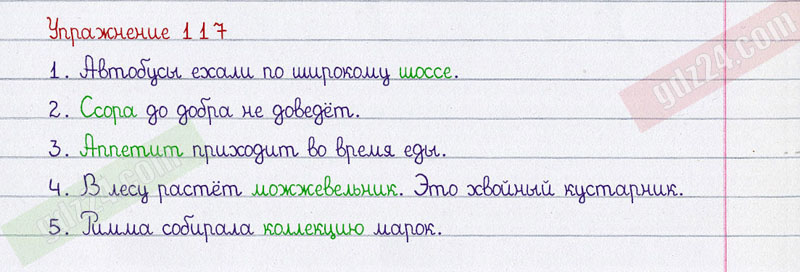 Упражнение 117
1. Автобусы ехали по широкому шоссе.
2. Ссора до добра не доведёт.
3. Аппетит приходит во время еды.
4. В лесу растёт можжевельник. Это хвойный кустарник.
5. Римма собирала коллекцию марок.
gdz24.com
gdz24.com